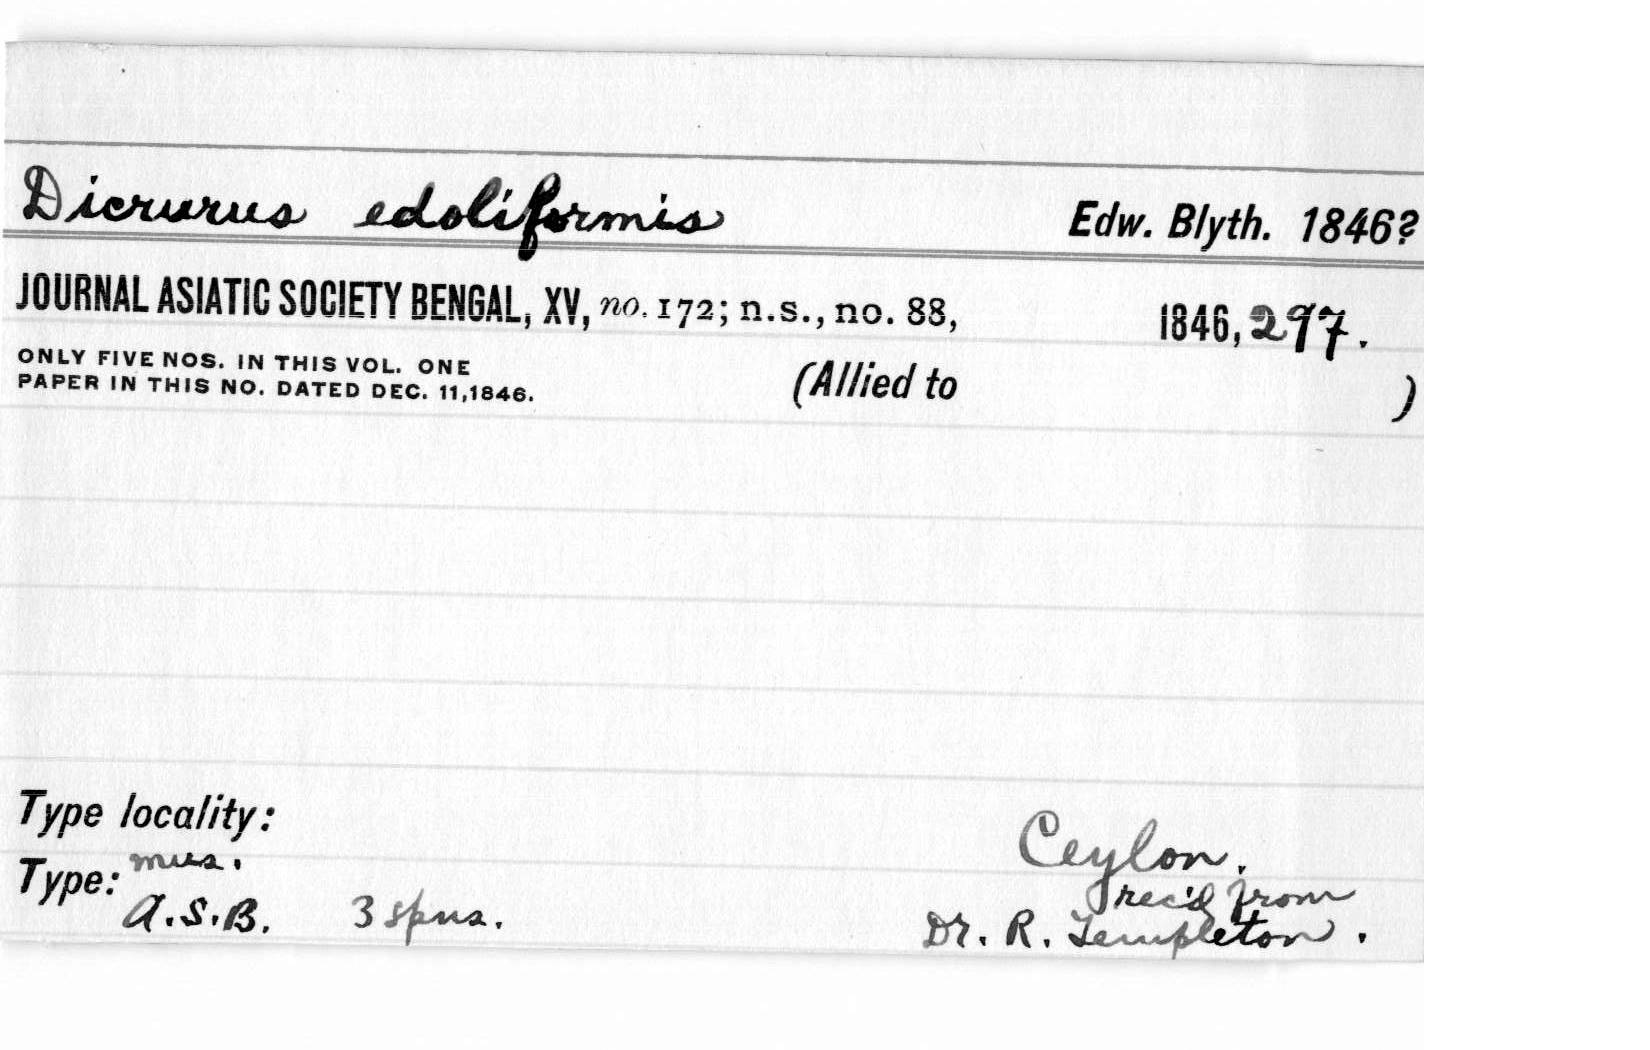 Dicrurus edoliformis Edw. Blyth. 1846?
JOURNAL ASIATIC SOCIETY BENGAL, XV, no. 172; n.s., no. 88, 1846, 297.
ONLY FIVE NOS. IN THIS VOL. ONE
PAPER IN THIS NO. DATED DEC. 11, 1846.
(Allied to )
Type locality: Ceylon.
Type: mus. rec'd from
A.S.B. 3 spns. Dr. R. Templeton.